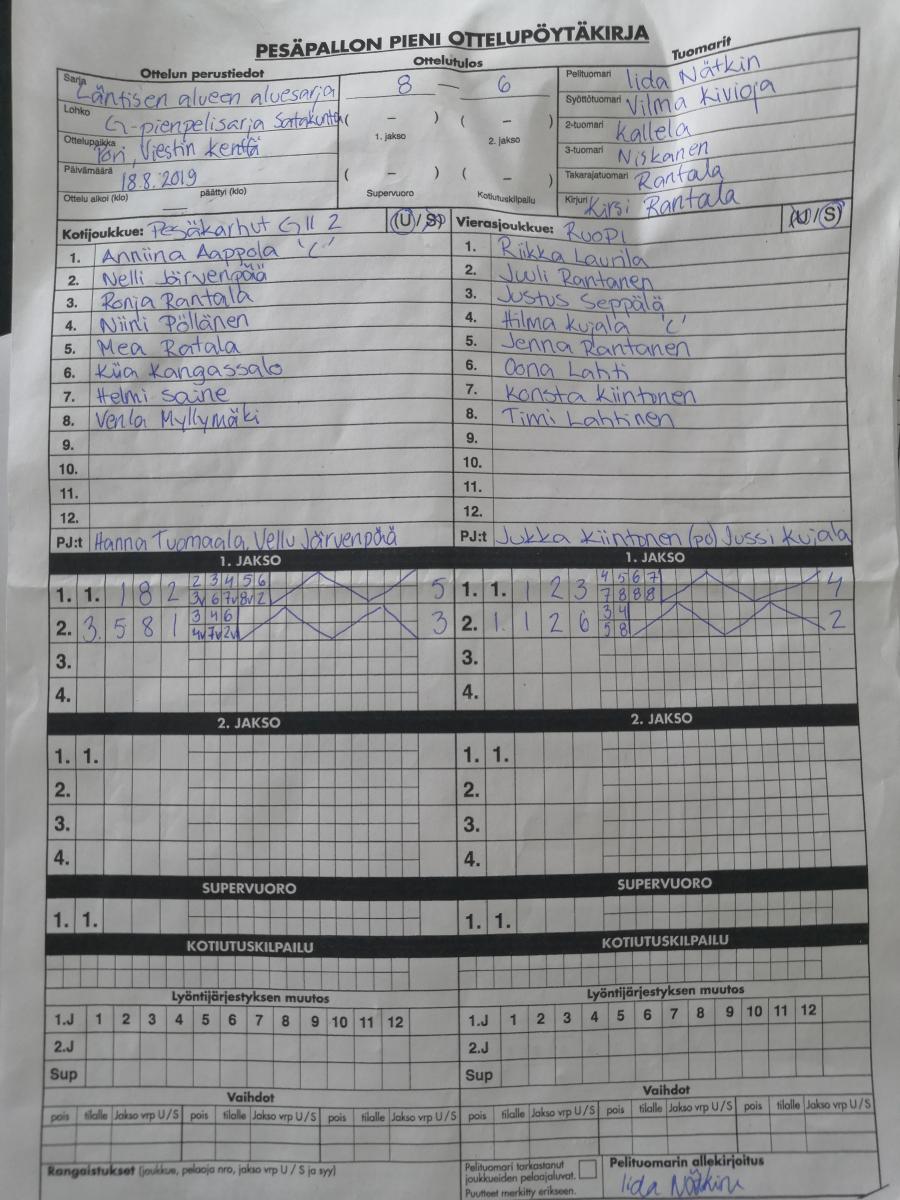 PESÄPALLON PIENI OTTELUPÖYTÄKIRJA
Ottelun perustiedot
Sarja Läntisen alueen aluesarja
Lohko G-pienpelisarja Satakunta
Ottelupaikka Pori, Viestin kenttä
Päivämäärä 18.8.2019
Ottelu alkoi (klo) — päättyi (klo)
Ottelutulos
8 — 6
( – ) ( – )
1. jakso 2. jakso
( – ) ( – )
Supervuoro Kotiutuskilpailu
Tuomarit
Pelituomari Iida Nätkin
Syöttötuomari Vilma Kivioja
2-tuomari Kallela
3-tuomari Niskanen
Takarajatuomari Rantala
Kirjuri Kirsi Rantala
Kotijoukkue: Pesäkarhut G II 2 (U / S)
1. Anniina Aappola 'C'
2. Nelli Järvenpää
3. Ronja Rantala
4. Niinli Pöllänen
5. Mea Ratala
6. Kiia Kangassalo
7. Helmi Saine
8. Venla Myllymäki
9.
10.
11.
12.
PJ:t Hanna Tuomaala, Vellu Järvenpää
Vierasjoukkue: RuoPi (U / S)
1. Riikka Laurila
2. Juuli Rantanen
3. Justus Seppälä
4. Hilma Kujala 'C'
5. Jenna Rantanen
6. Oona Lahti
7. Konsta Kiintonen
8. Timi Lahtinen
9.
10.
11.
12.
PJ:t Jukka Kiintonen (po) Jussi Kujala
1. JAKSO
1. 1. 1 8 2 2 3 4 5 6 5
3v 6 7v 8v 2
2. 3. 5 8 1 3 4 6 3
4v 7v 2v
3.
4.
1. JAKSO
1. 1. 1 2 3 4 5 6 7 4
7 8 8 8
2. 1. 1 2 6 3 4 2
5 8
3.
4.
2. JAKSO
1. 1.
2.
3.
4.
2. JAKSO
1. 1.
2.
3.
4.
SUPERVUORO
1. 1.
SUPERVUORO
1. 1.
KOTIUTUSKILPAILU
KOTIUTUSKILPAILU
Lyöntijärjestyksen muutos
1.J 1 2 3 4 5 6 7 8 9 10 11 12
2.J
Sup
Lyöntijärjestyksen muutos
1.J 1 2 3 4 5 6 7 8 9 10 11 12
2.J
Sup
Vaihdot
pois tilalle Jakso vrp U / S pois tilalle Jakso vrp U / S pois tilalle Jakso vrp U / S
Vaihdot
pois tilalle Jakso vrp U / S pois tilalle Jakso vrp U / S pois tilalle Jakso vrp U / S
Rangaistukset (joukkue, pelaaja nro, jakso vrp U / S ja syy)
Pelituomari tarkastanut
joukkueiden pelaajaluvat.
Puutteet merkitty erikseen.
Pelituomarin allekirjoitus
Iida Nätkin